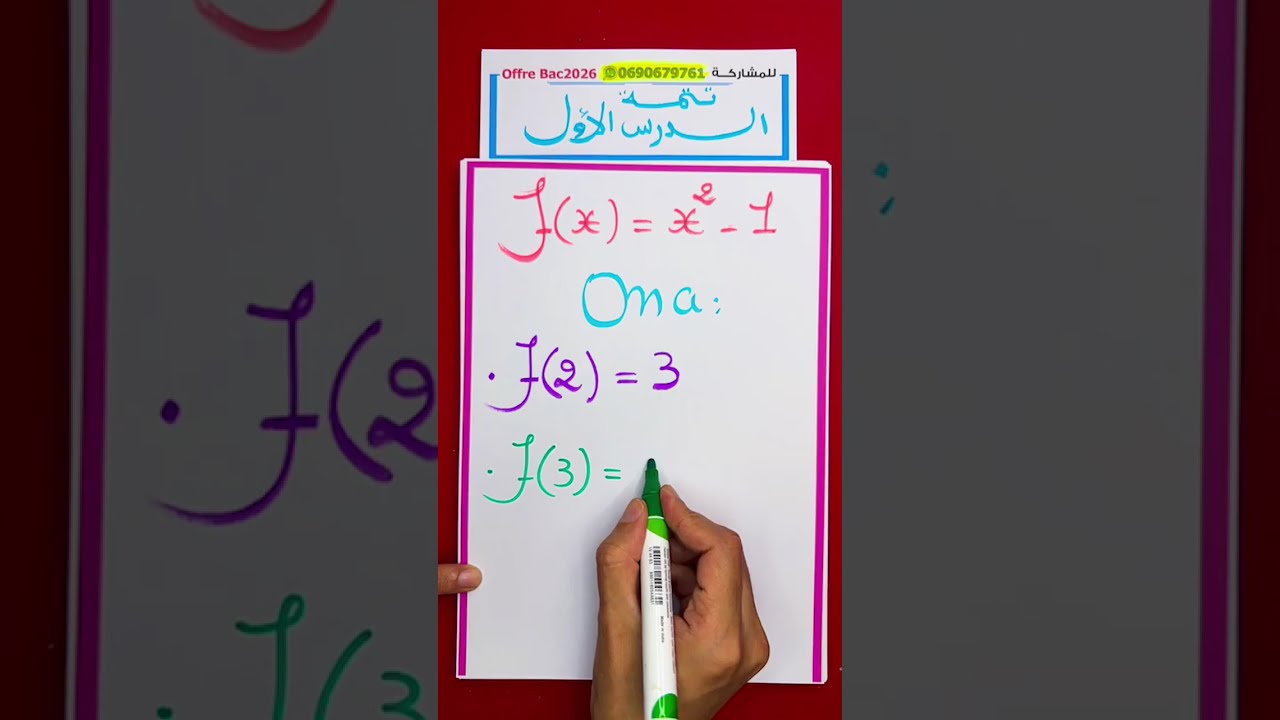 Offre Bac2026 0690679761 للمشاركة
تتمة
الدرس الأول
f(x) = x² - 1
On a :
. f(2) = 3
. f(3) =